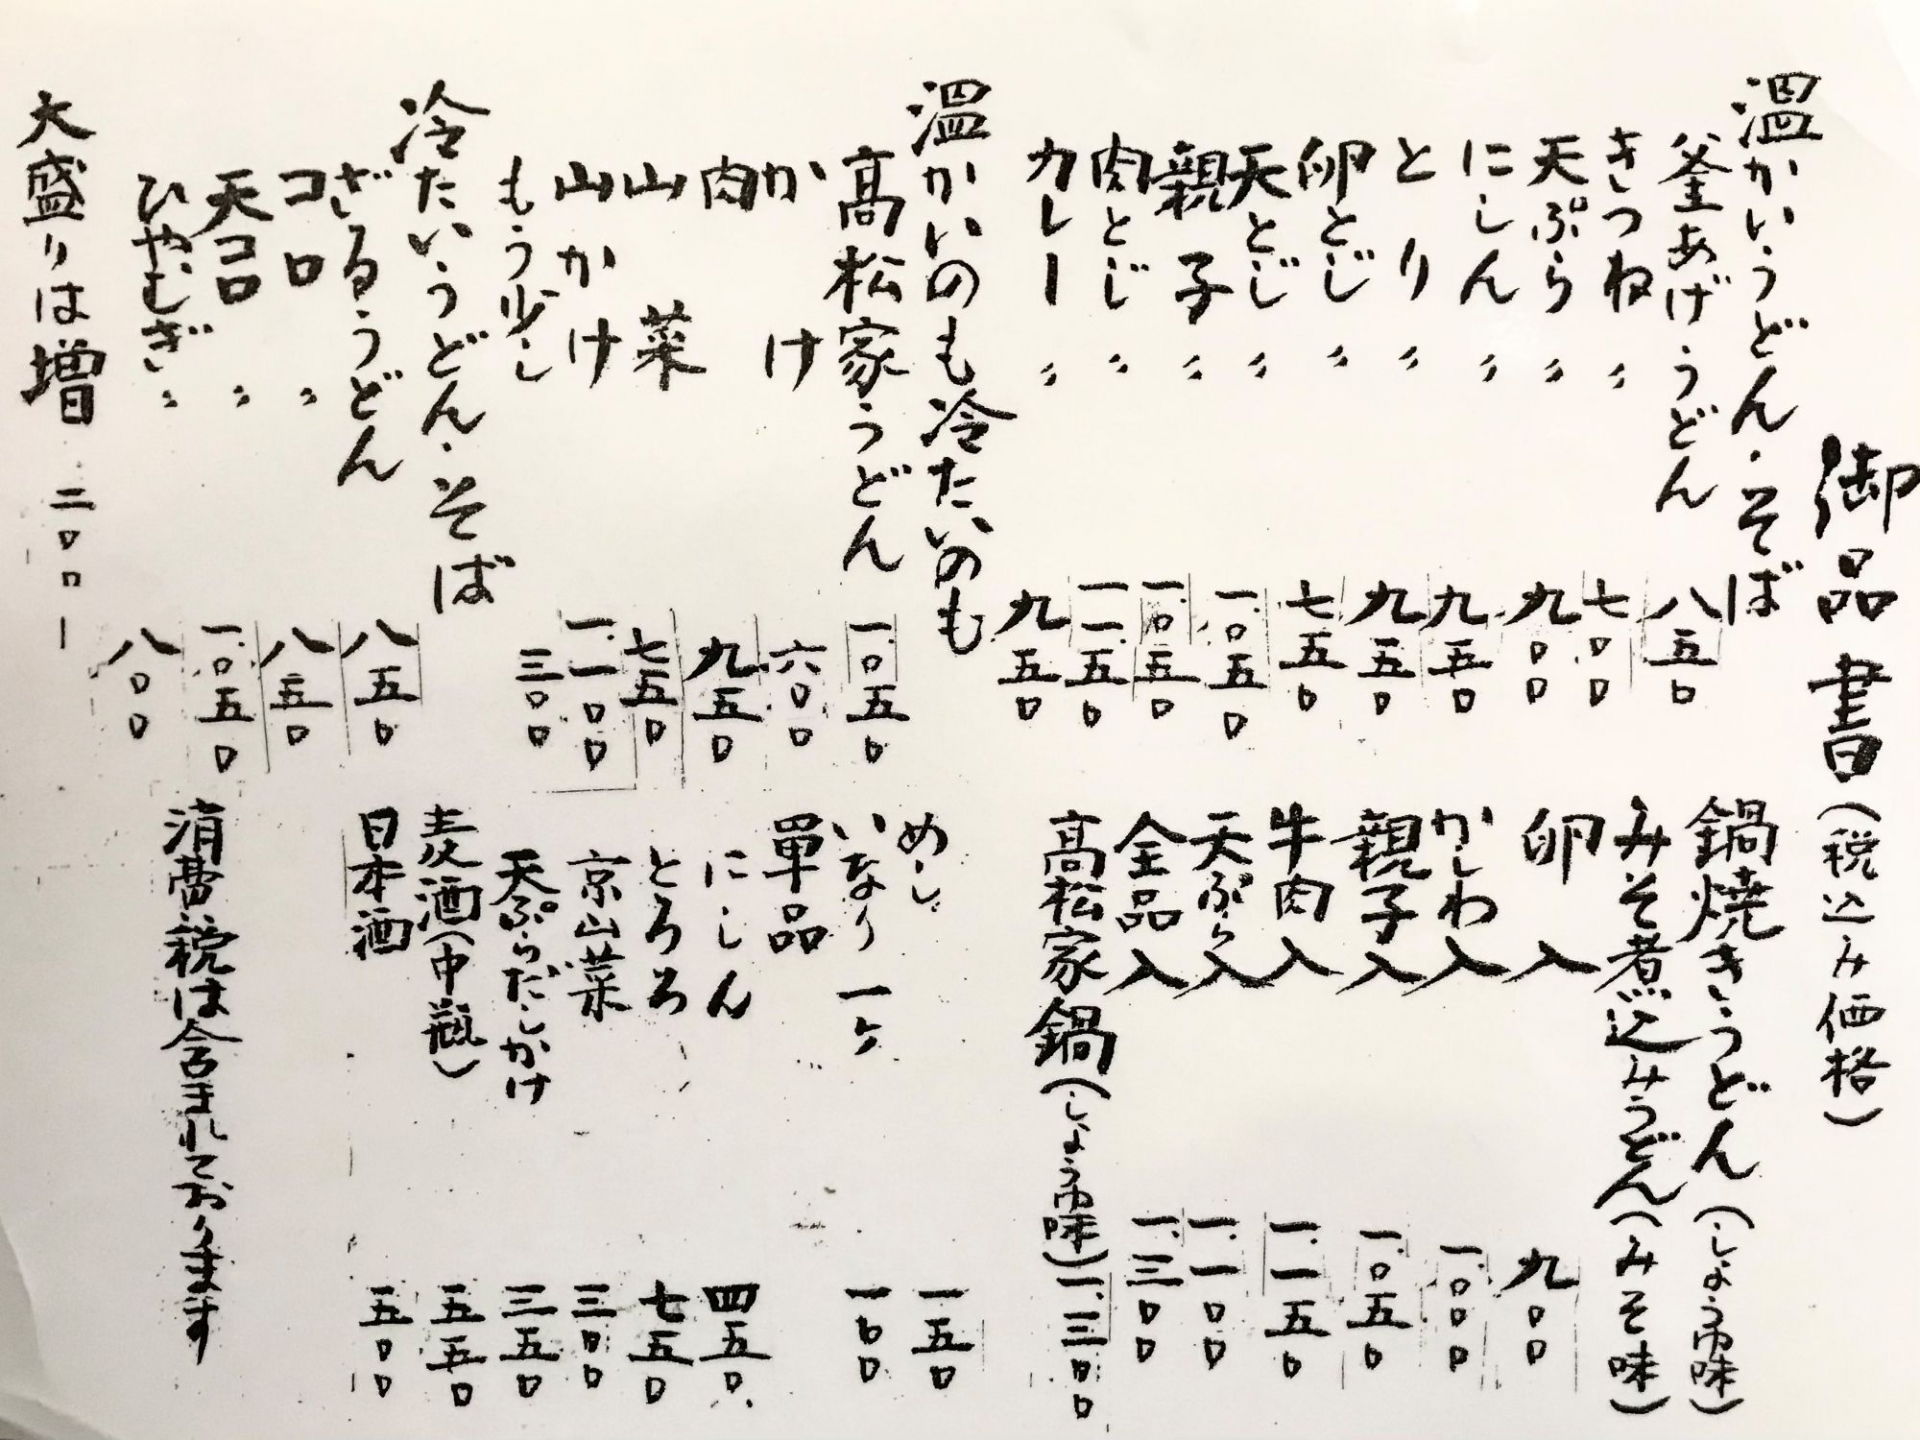 御品書(税込み価格)
温かいうどん・そば
釜あげうどん 八五〇
きつね〃 七〇〇
天ぷら〃 九〇〇
にしん〃 九五〇
とり〃 九五〇
卵とじ〃 七五〇
天とじ〃 一.〇五〇
親子〃 一.〇五〇
肉とじ〃 一一五〇
カレー〃 九五〇
温かいのも冷たいのも
高松家うどん 一.〇五〇
かけ 六〇〇
肉 九五〇
山菜 七五〇
山かけ 一.一〇〇
もう少し 三〇〇
冷たいうどん・そば
ざるうどん 八五〇
コロ〃 八五〇
天コロ〃 一.〇五〇
ひやむぎ〃 八〇〇
大盛りは増 二〇〇ー
鍋焼きうどん(しょうゆ味)
みそ煮込みうどん(みそ味)
卵入 九〇〇
かしわ入 一.〇〇〇
親子入 一.〇五〇
牛肉入 一.一五〇
天ぷら入 一.一〇〇
全品入 一.三〇〇
高松家鍋(しょうゆ味) 一.三〇〇
めし 一五〇
いなり一ケ 一〇〇
単品
にしん 四五〇
とろろ 七五〇
京山菜 三〇〇
天ぷらだしかけ 三五〇
麦酒(中瓶) 五五〇
日本酒 五〇〇
消費税は含まれております